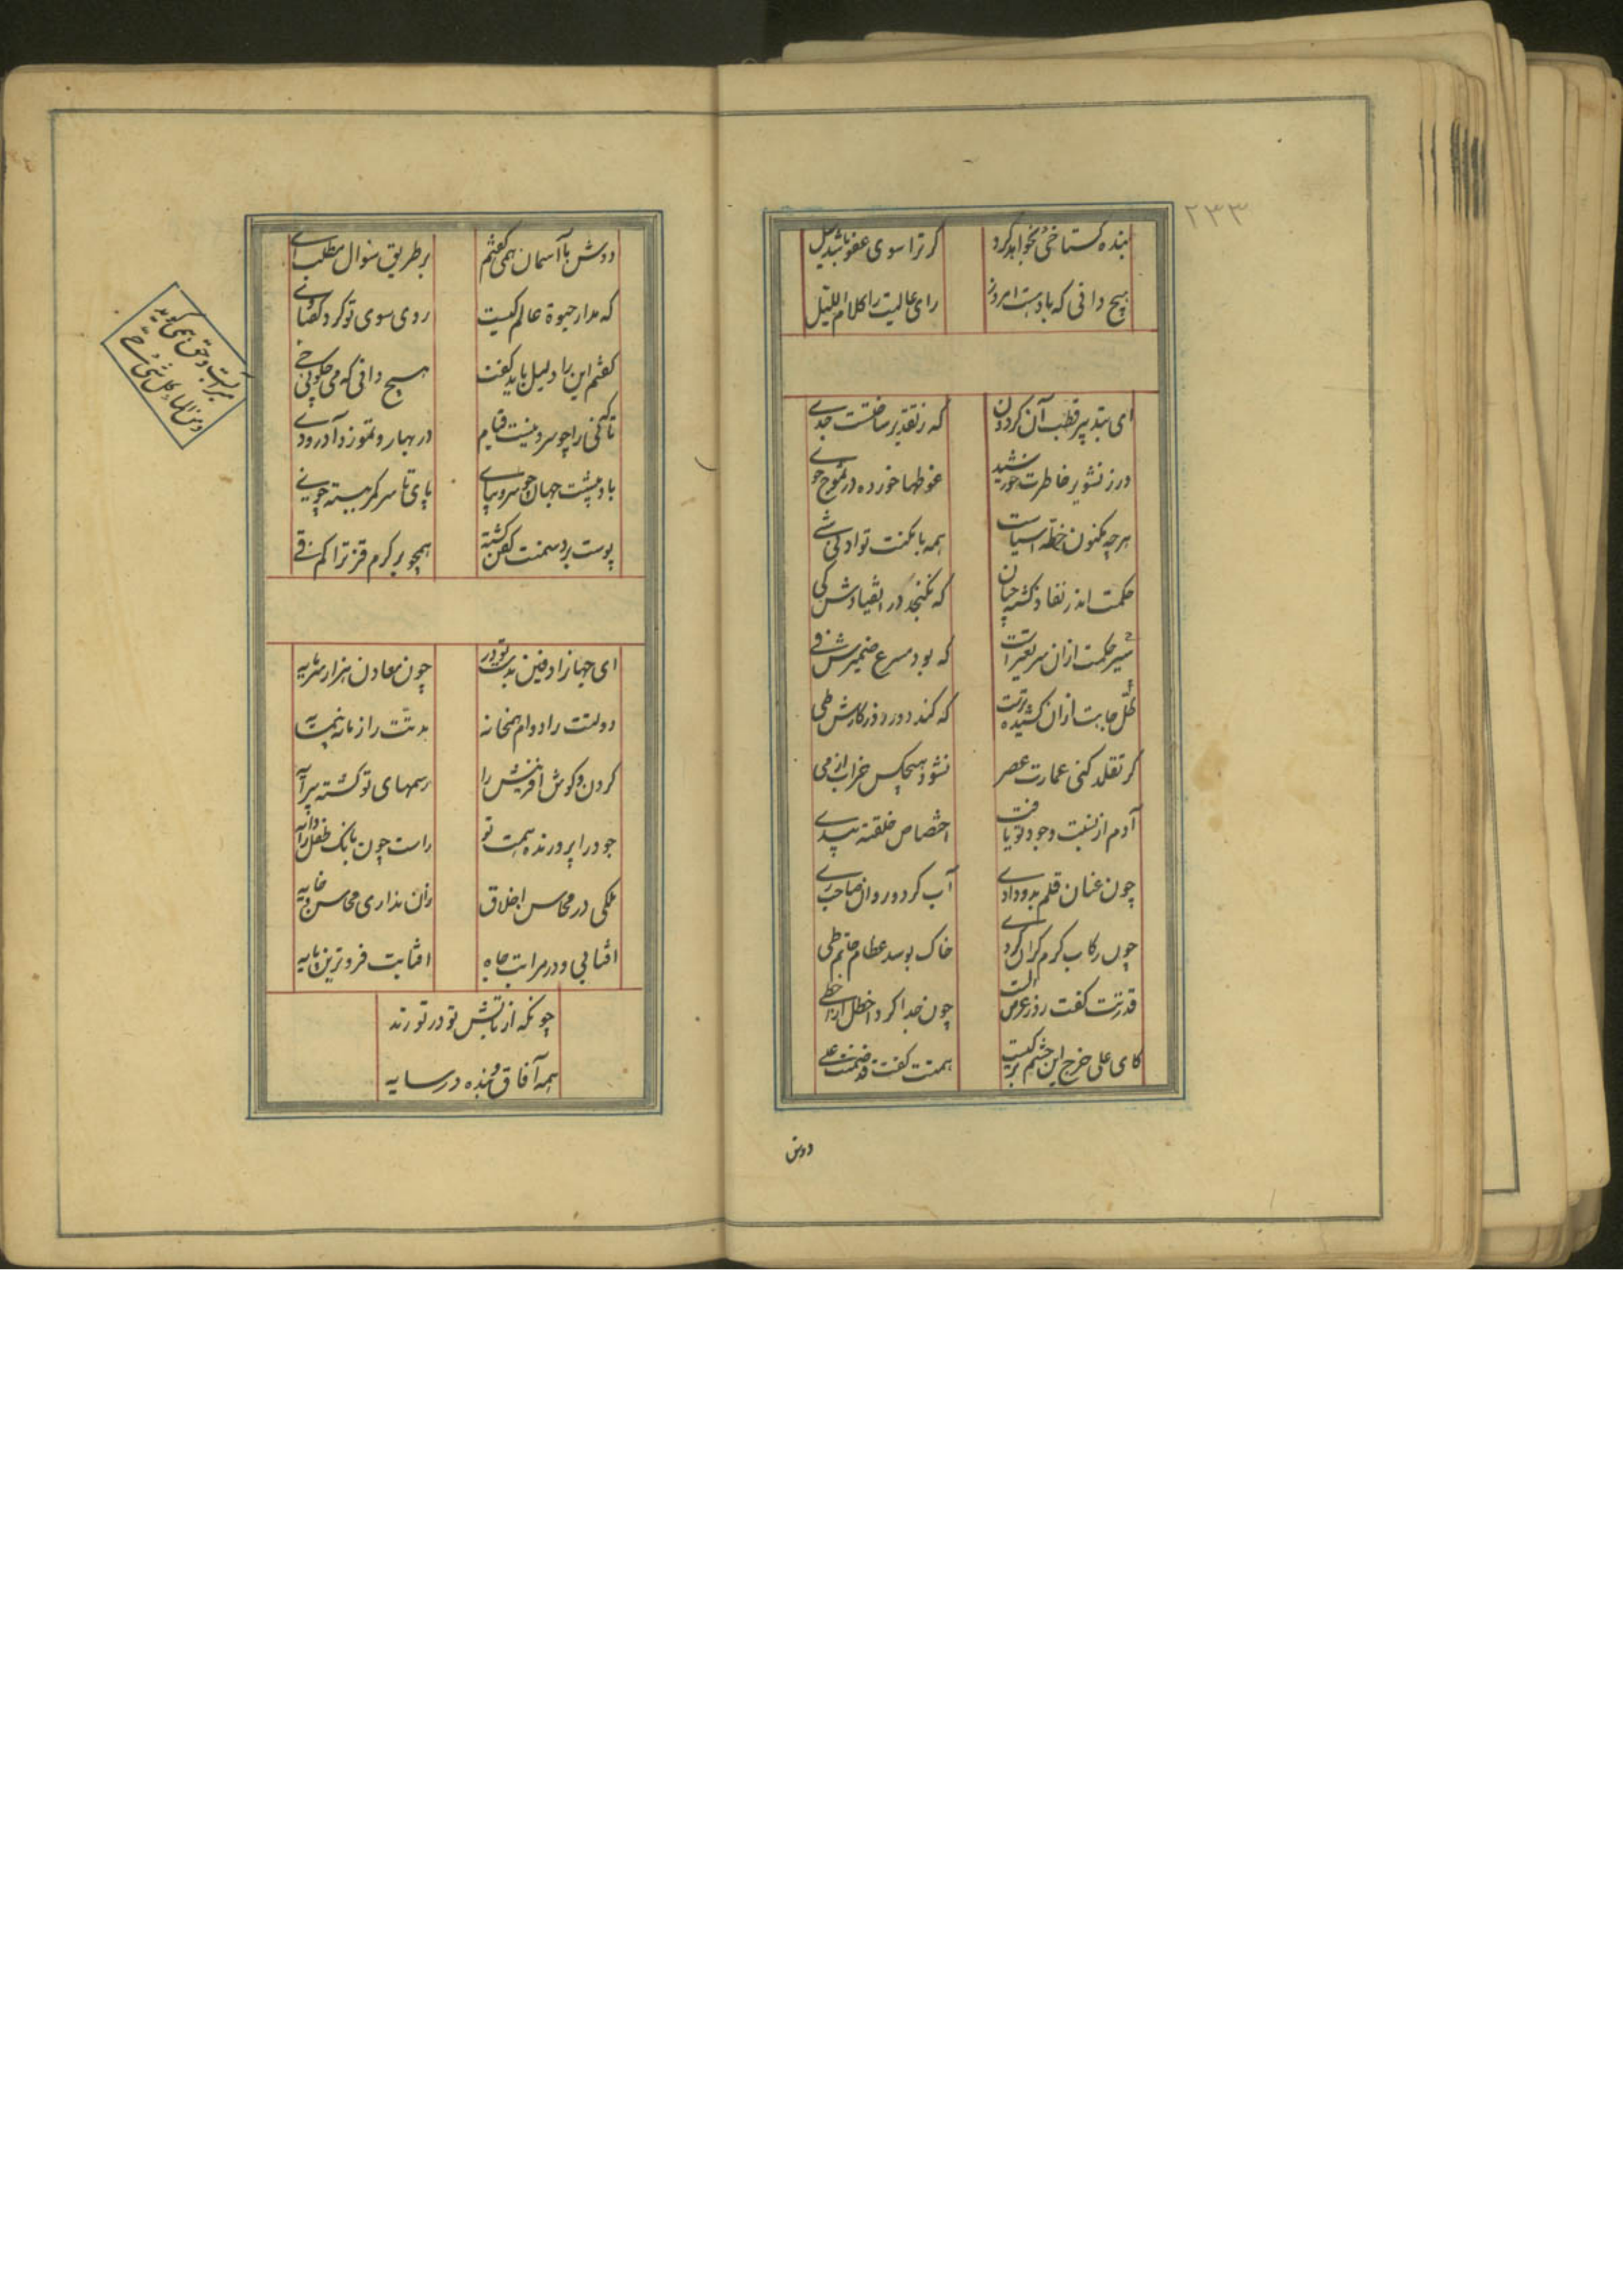 ۲۳۳
بنده گستاخی نخواهد کرد
گر ترا سوی عفو باشد میل
هیچ دانی که یادهست امروز
رای عالیت را کلام اللیل
ای بتدبیر قطب آن گردون
که ز تقدیر ساختست جدی
در ز تشویر خاطرت خورشید
غوطها خورده در تموج خوی
هرچه مکنون خطه اشیاست
همه با مکنت تو ادنی شی
حکمت اندر نفاذ گشته چنان
که نگنجد در انقیادش کی
سیر حکمت از ان سریعترست
که بود مسرع ضمیرش پی
ظل جاهت از ان کشیده ترست
که کند دور روزگارش طی
گر تقلد کنی عمارت عصر
نشود هیچکس خراب از می
آدم از نسبت وجود تو یافت
اختصاص خلقته بیدی
چون عنان قلم بدو دادی
آب گردد روان صاحب ری
چون رکاب کرم گران کردی
خاک بوسد عظام حاتم طی
قدرتت گفت روز عرض الست
چون جدا کرد اخطل از اخطی
کای علی خرج این حشم بر کیست
همتت گفت قد ضمنت علی
دوش
دوش با آسمان همی گفتم
بر طریق سوال مطلب ای
که مدار حیوة عالم کیست
روی سوی تو کرد و گفتا وی
گفتم این را دلیل باید گفت
هیچ دانی که می چگویی هی
میرآبست و حق همی گوید
ومن الماء کل شئ حی
تا که نی را چو سرو نیست قیام
در بهار و تموز و آذر و دی
باد پشت جهان چو سرو بپای
پای تا سر کمر ببسته چو نی
پوست بر دشمنت کفن گشته
همچو بر کرم قز تراکم قی
ای جهانرا دفین بدست تو در
چون معادن هزار سرمایه
دولتت را دوام همخانه
مدتت را زمانه همسایه
گردن و گوش آفرینش را
رسمهای تو گشته پیرایه
جود را پرورنده همت تو
راست چون بانک طفل را دایه
ملکی در محاسن اخلاق
زان نداری محاسن و خایه
آفتابی و در مراتب جاه
آفتابت فروترین پایه
چونکه از تابش تو در تو رند
همه آفاق و بنده در سایه